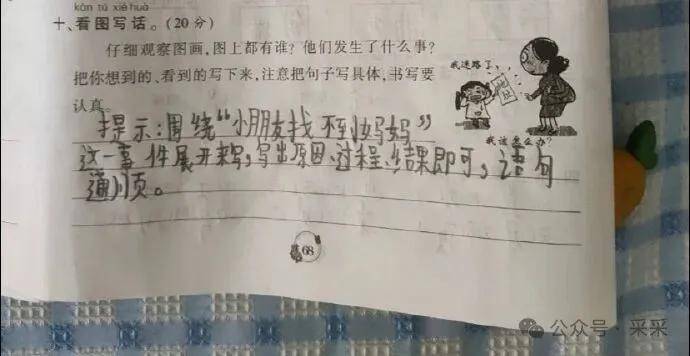 kàn tú xiě huà
十、看图写话。(20分)
仔细观察图画,图上都有谁?他们发生了什么事?
把你想到的、看到的写下来,注意把句子写具体,书写要
认真。
我迷路了,
我该怎么办?
提示:围绕“小朋友找不到妈妈”
这一事件展开来写,写出原因、过程、结果即可,语句
通顺。
68
公众号·采采